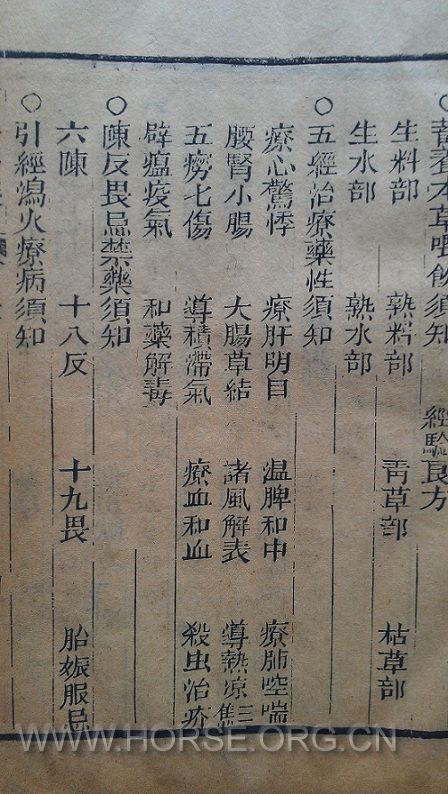 ○芻養水草喂飲須知 經驗良方
生料部 熟料部 靑草部 枯草部
生水部 熟水部
○五經治療藥性須知
療心驚悸 療肝明目 温脾和中 療肺啌喘
腰腎小腸 大腸草結 諸風解表 導熱凉三焦
五癆七傷 導積滯氣 療血和血 殺虫治疥
辟瘟疫氣 和藥解毒
○陳反畏忌禁藥須知
六陳 十八反 十九畏 胎娠服忌
○引經瀉火療病須知
WWW.HORSE.ORG.CN